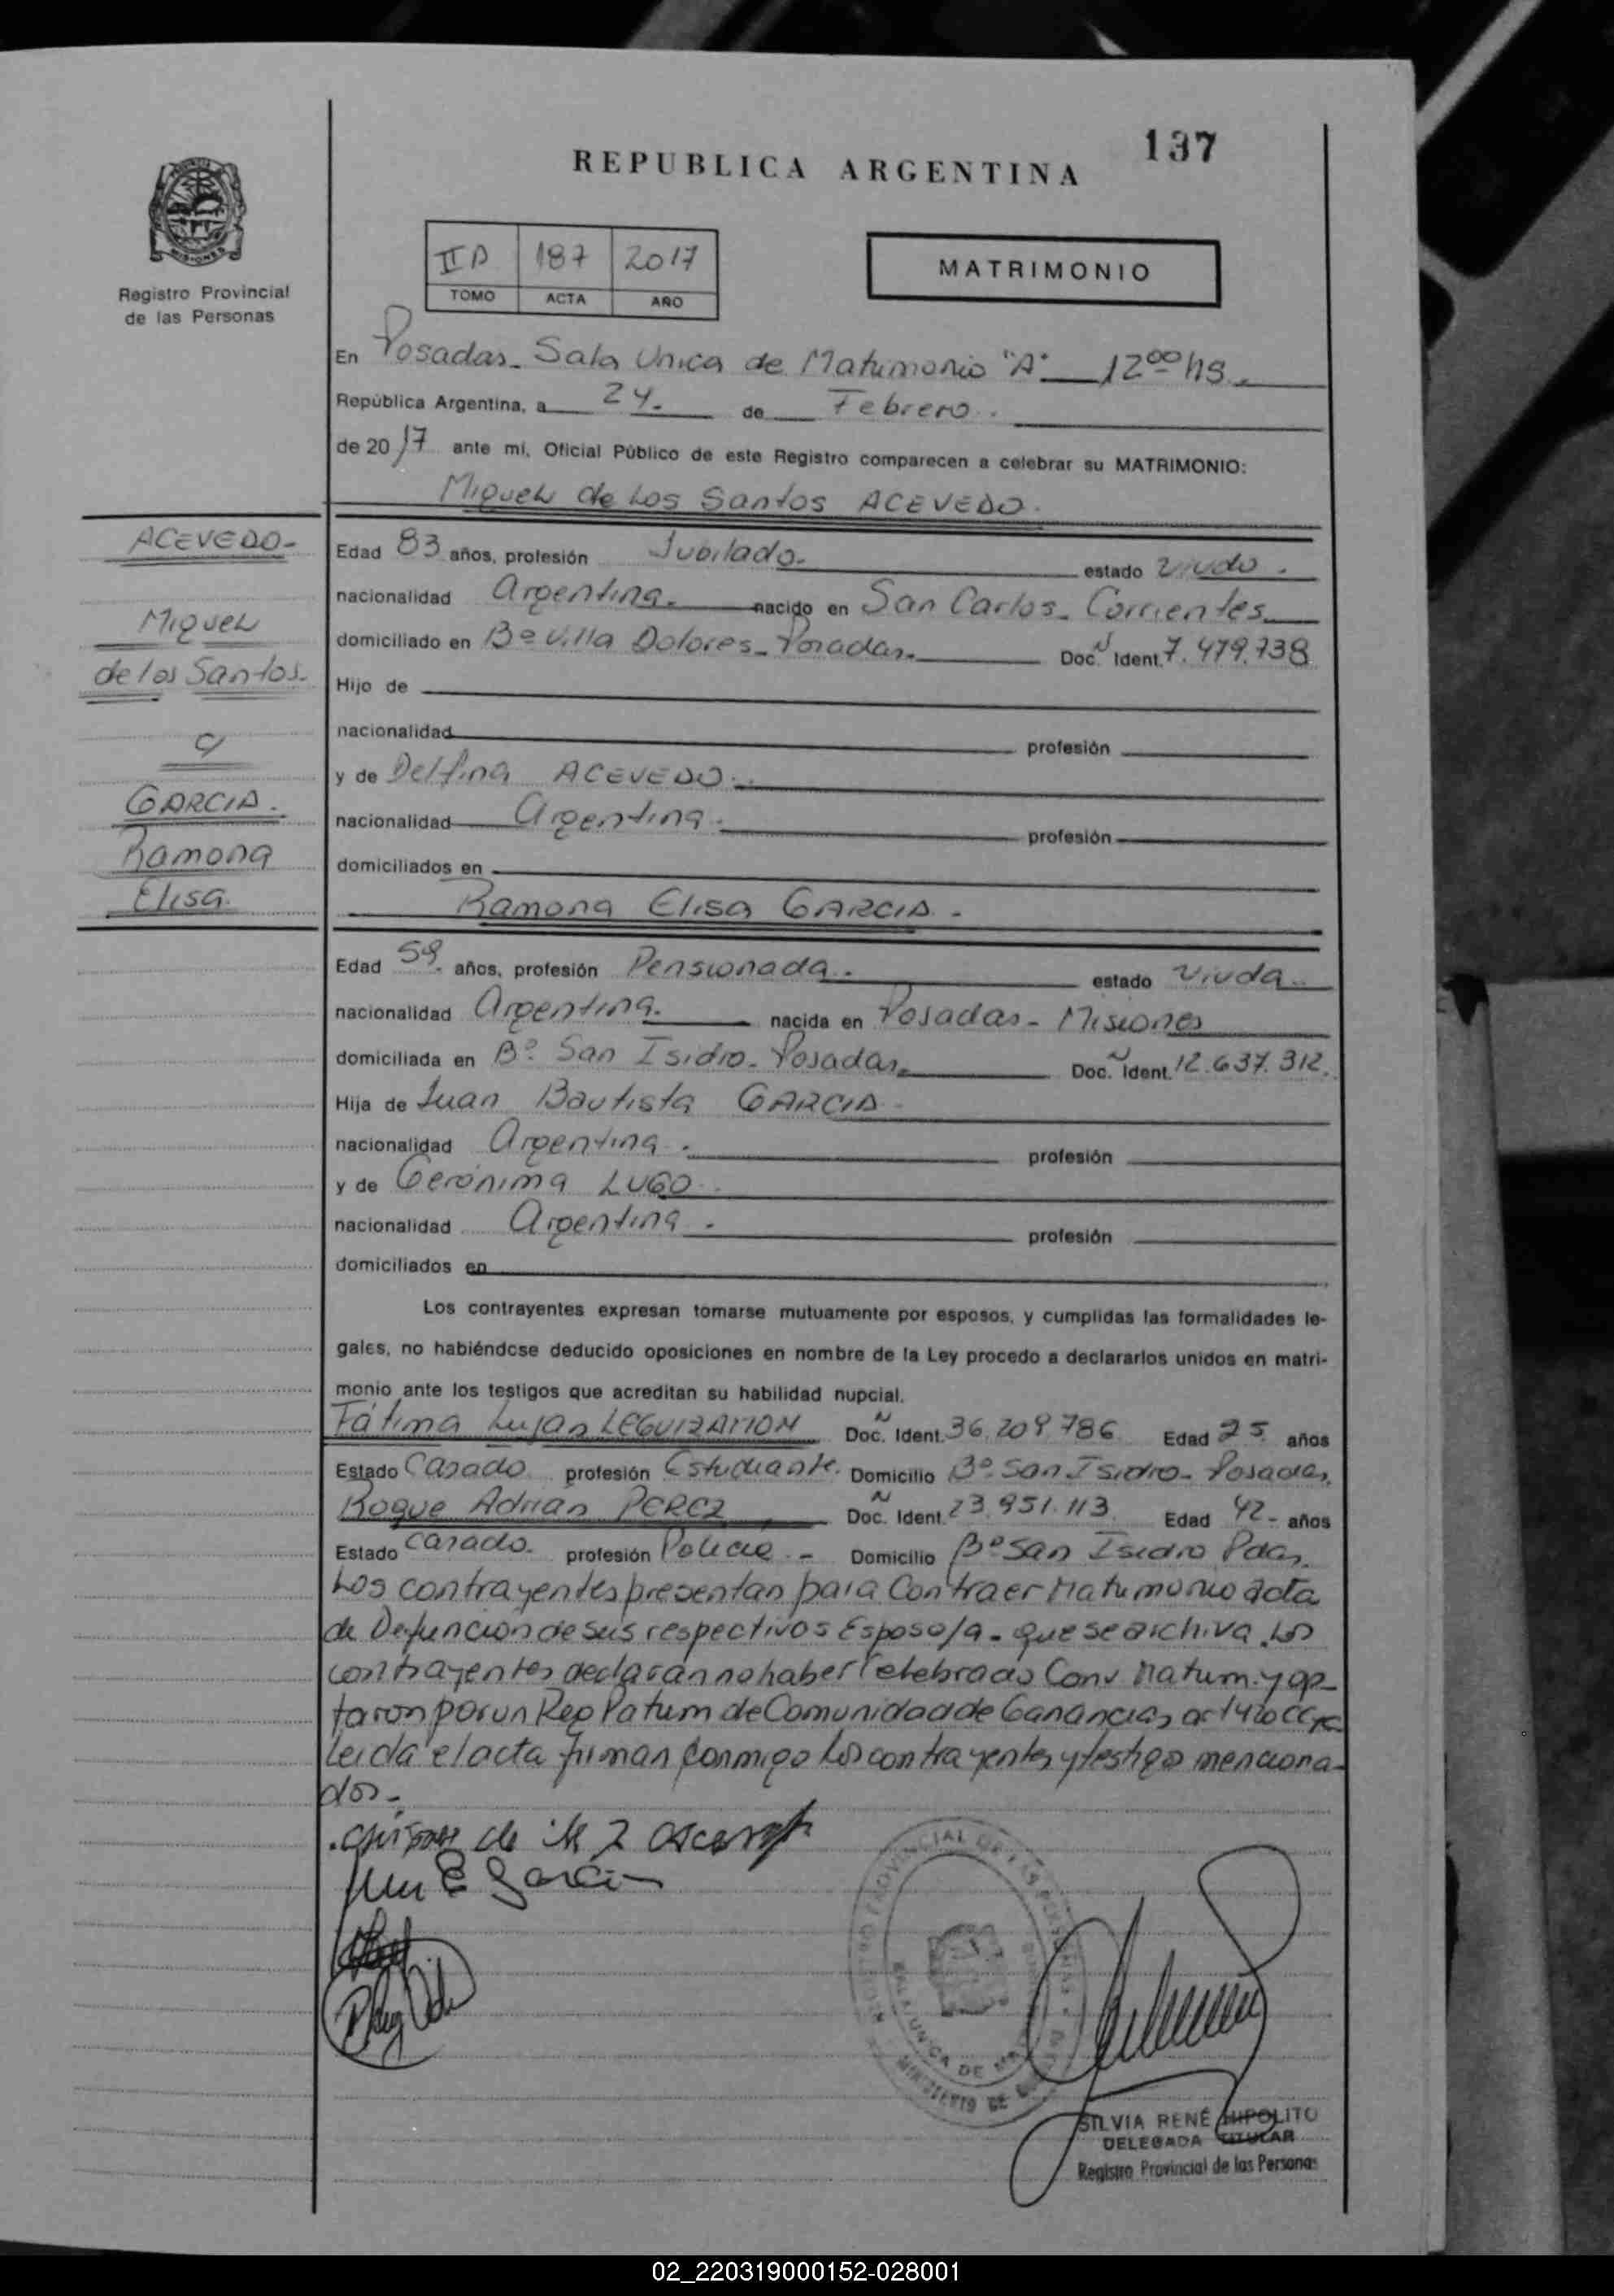 137
REPUBLICA ARGENTINA
MISIONES
Registro Provincial
de las Personas
IIA 187 2017
TOMO ACTA AÑO
MATRIMONIO
En Posadas - Sala Unica de Matrimonio "A" 12ºº hs.
República Argentina, a 24. de Febrero.
de 2017 ante mí, Oficial Público de este Registro comparecen a celebrar su MATRIMONIO:
Miguel de los Santos ACEVEDO.
ACEVEDO-
Miguel
de los Santos.
c/
GARCIA.
Ramona
Elisa.
Edad 83 años, profesión Jubilado. estado viudo.
nacionalidad Argentina. nacido en San Carlos - Corrientes
domiciliado en Bº Villa Dolores - Posadas. Doc. Ident. 7.479.738
Hijo de
nacionalidad profesión
y de Delfina ACEVEDO.
nacionalidad Argentina. profesión
domiciliados en
Ramona Elisa GARCIA.
Edad 59. años, profesión Pensionada. estado viuda
nacionalidad Argentina. nacida en Posadas - Misiones
domiciliada en Bº San Isidro - Posadas. Doc. Ident. 12.637.312.
Hija de Juan Bautista GARCIA
nacionalidad Argentina. profesión
y de Gerónima LUGO.
nacionalidad Argentina. profesión
domiciliados en
Los contrayentes expresan tomarse mutuamente por esposos, y cumplidas las formalidades le-
gales, no habiéndose deducido oposiciones en nombre de la Ley procedo a declararlos unidos en matri-
monio ante los testigos que acreditan su habilidad nupcial.
Fátima Lujan LEGUIZAMON Doc. Ident. 36.209.786 Edad 25 años
Estado Casado profesión Estudiante. Domicilio Bº San Isidro - Posadas.
Roque Adrián PEREZ Doc. Ident. 23.951.113 Edad 42 - años
Estado Casado. profesión Policia - Domicilio Bº San Isidro Pdas.
Los contrayentes presentan para Contraer Matrimonio acta
de Defunción de sus respectivos Esposo/a - que se archiva. Los
contrayentes declaran no haber Celebrado Conv Matrim. y op-
taron por un Reg Patrim de Comunidad de Ganancias
Leida el acta firman conmigo los contrayentes y testigos menciona-
dos.-
Garcia
SILVIA RENÉ HIPOLITO
DELEGADA TITULAR
Registro Provincial de las Personas
02_220319000152-028001